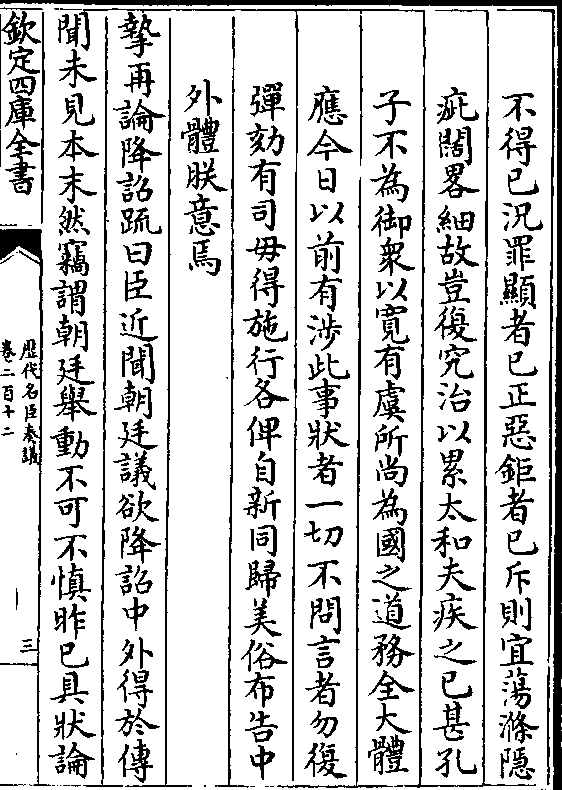 不得已況罪顯者已正惡鉅者已斥則宜蕩滌隱
疵闊畧細故豈復究治以累太和夫疾之已甚孔
子不為御衆以寛有虞所尚為國之道務全大體
應今日以前有涉此事狀者一切不問言者勿復
彈劾有司毋得施行各俾自新同歸美俗布告中
外體朕意焉
摯再論降詔䟽曰臣近聞朝廷議欲降詔中外得於傳
聞未見本末然竊謂朝廷舉動不可不慎昨已具狀論
欽定四庫全書
歷代名臣奏議
卷二百十二
三